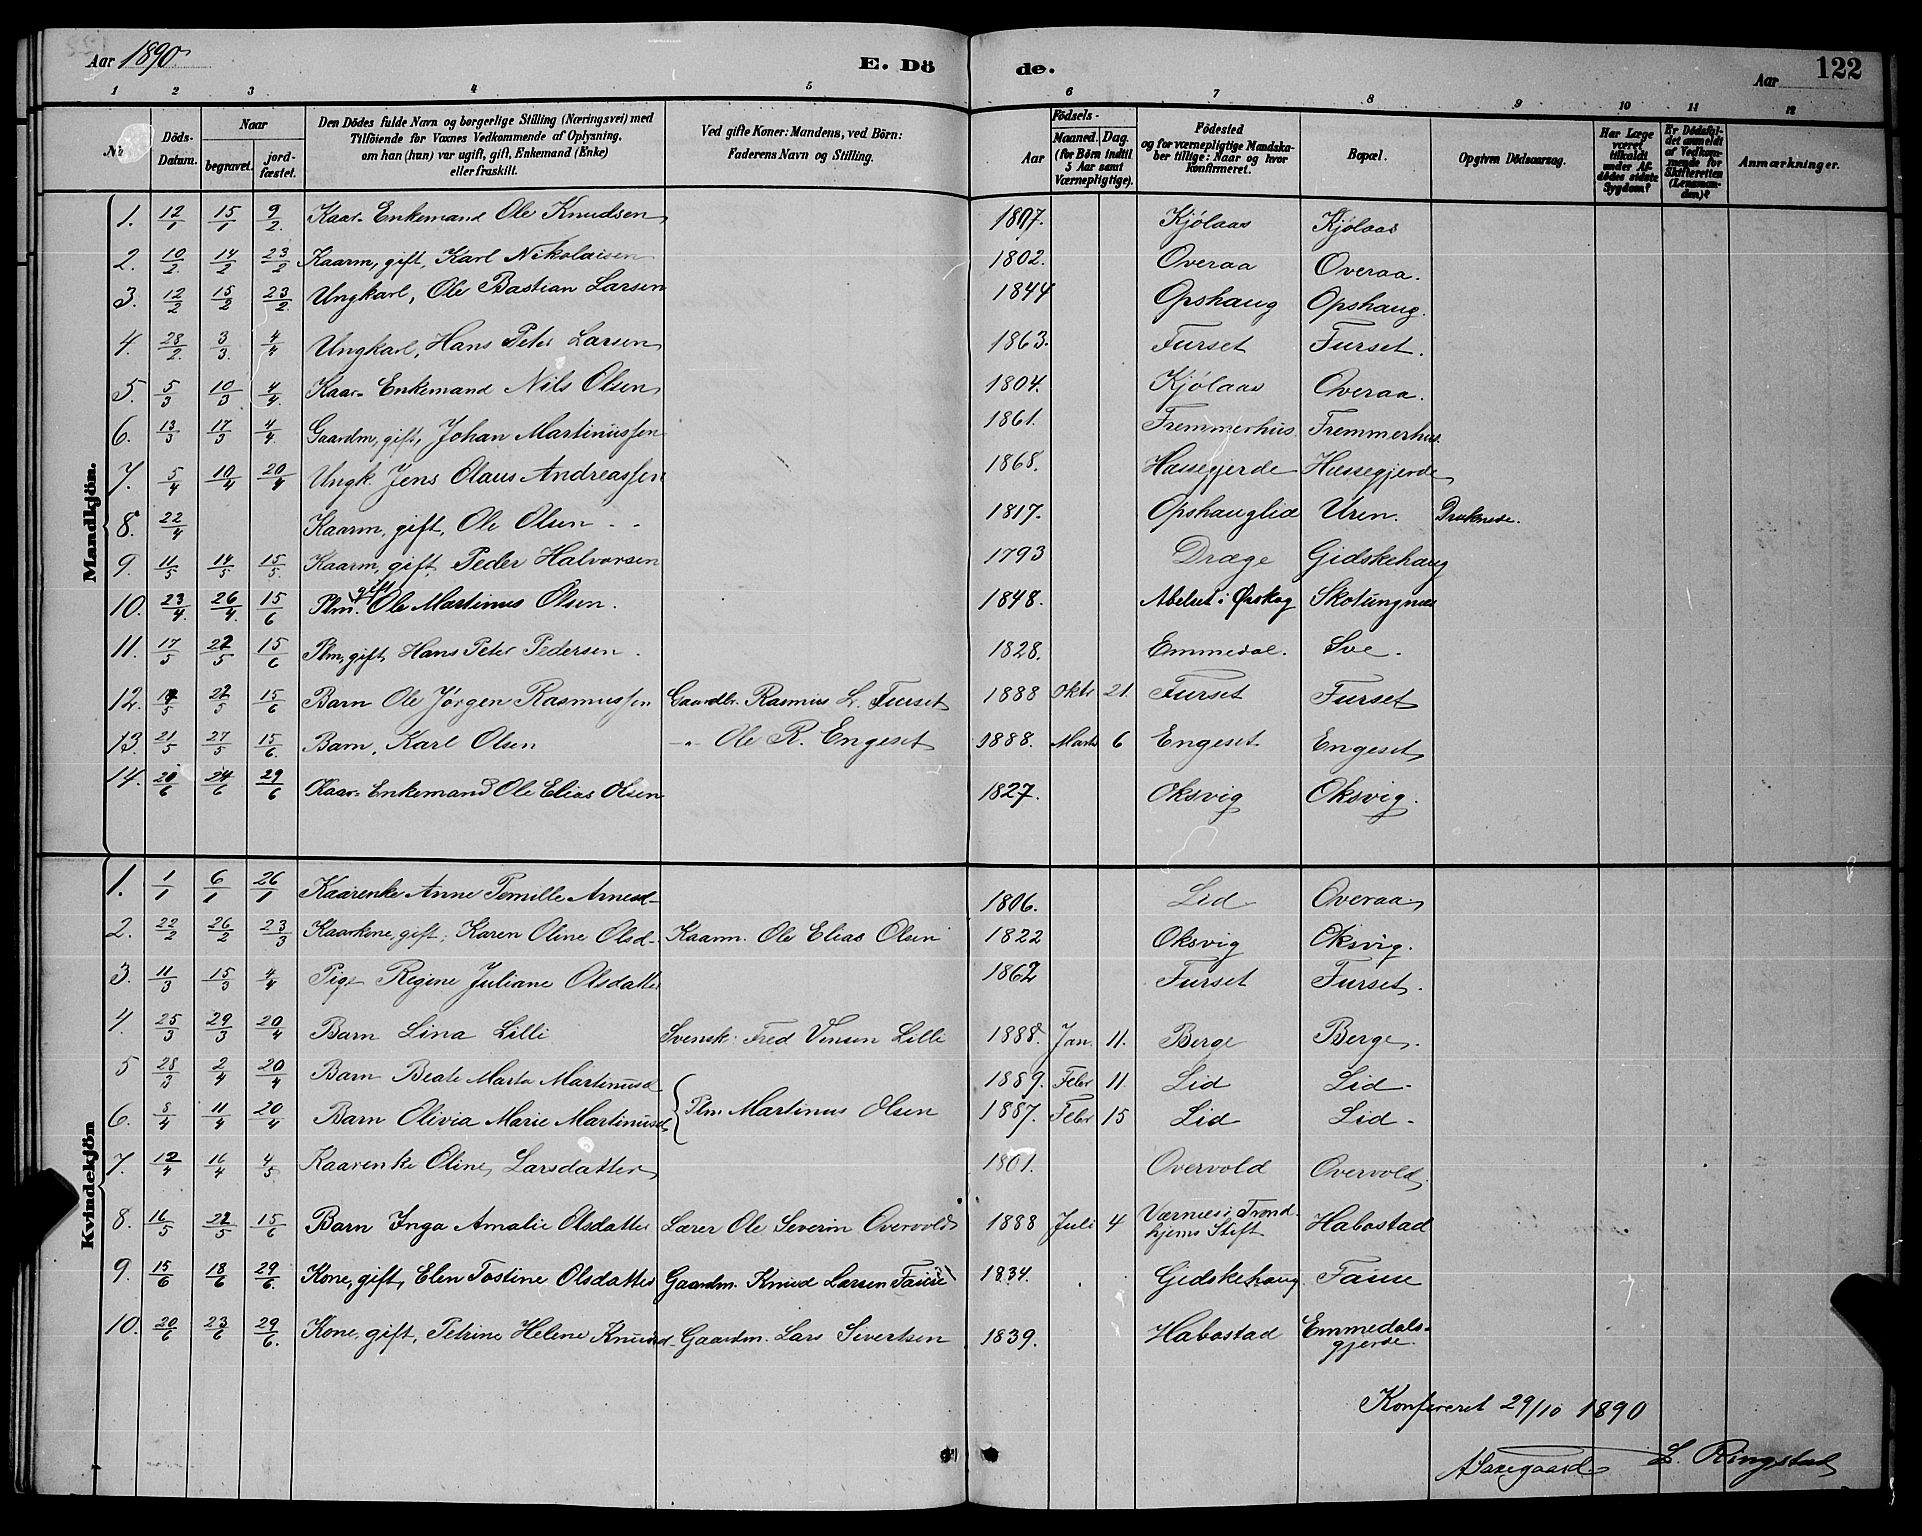 Aar 1890. E. Dö de. Aar 122
1 2 3 4 5 6 7 8 9 10 11 12
Döds-Datum. Naar begravet. jord-fæstet. Den Dödes fulde Navn og borgerlige Stilling (Næringsvei) med Tilföiende for Voxnes Vedkommende af Oplysning, om han (hun) var ugift, gift, Enkemand (Enke) eller fraskilt. Ved gifte Koner: Mandens, ved Börn: Faderens Navn og Stilling. Födsels- Aar Maaned. Dag. (for Börn indtil 5 Aar samt Værnepligtige). Födested og for værnepligtige Mandskaber tillige: Naar og hvor konfirmeret. Bopæl. Opgiven Dödsaarsag. Har Læge været tilkaldt under Afdödes sidste Sygdom? Er Dödsfaldet anmeldt af Vedkommende for Skifteretten (Lensmanden)? Anmærkninger.
Mandkjön.
1. 12/1 15/1 9/2. Kaar-Enkemand Ole Knudsen 1807. Kjölaas Kjölaas
2. 10/2. 14/2 23/2 Kaarm, gift, Karl Nikolaisen 1802. Overaa Overaa.
3. 12/2 15/2 23/2. Ungkarl, Ole Bastian Larsen 1844 Opshaug Opshaug.
4. 28/2. 3/3. 4/4 Ungkarl, Hans Peter Larsen 1863. Furset Furset.
5. 5/3 10/3 4/4. Kaar-Enkemand Nils Olsen 1804. Kjölaas Overaa.
6. 13/3 17/3 4/4. Gaardm, gift, Johan Martinussen 1861. Fremmerhus Fremmerhus
7. 5/4 10/4 20/4 Ungk. Jens Olaus Andreassen 1868. Hassegjerde Hassegjerde
8. 22/4 Kaarm, gift, Ole Olsen 1817. Opshauglid Uren. Druknede.
9. 11/5 14/5 15/5. Kaarm, gift, Peder Halvorsen 1793 Dræge Gidskehaug
10. 23/4. 26/4. 15/6 Plm. gift Ole Martinus Olsen. 1848. Abelset i Ørskog Skotungnæs
11. 17/5 22/5 15/6 Plm, gift, Hans Peter Pedersen. 1828. Emmedal. Sve.
12. 18/5 22/5 15/6 Barn Ole Jørgen Rasmussen Gaardbr. Rasmus L. Furset 1888 Oktr 21. Furset Furset
13. 21/5 27/5 15/6. Barn, Karl Olsen -"- Ole R. Engeset 1888. Marts 6 Engeset Engeset
14. 20/6 24/6 29/6 Kaar-Enkemand Ole Elias Olsen 1827. Oksvig Oksvig.
Kvindekjön
1. 1/1 6/1 26/1 Kaarenke Anne Pernille Arnesd- 1806. Lid Overaa
2. 22/2 26/2 23/3 Kaarkone, gift, Karen Oline Olsd- Kaarm. Ole Elias Olsen 1822 Oksvig Oksvig.
3. 11/3 15/3 4/4 Pige Regine Juliane Olsdatter 1862 Furset Furset.
4. 25/3 29/3 20/4 Barn Lina Lilli Svensk. Fred Vinsen Lilli 1888. Jan. 11. Berge Berge.
5 28/3 2/4 20/4 Barn Beate Marta Martinusd 1889. Febr 11. Lid Lid-
6. 8/4 11/4 20/4 Barn Olivia Marie Martinusd Plm. Martinus Olsen 1887. Febr 15 Lid Lid-
7. 12/4 16/4 4/5 Kaarenke Oline Larsdatter 1801. Overvold Overvold
8. 16/5 22/5 15/6 Barn Inga Amalie Olsdatter Lærer Ole Severin Overvold 1888 Juli 4 Værnes i Trondhjems Stift Habostad
9. 15/6 18/6 29/6. Kone, gift, Elen Tostine Olsdatter Gaardm. Knud Larsen Tause 1834. Gidskehaug Tause
10. 20/6 23/6 29/6. Kone, gift, Petrine Helene Knudsd- Gaardm. Lars Sivertsen 1839. Habostad Emmedalsgjerde.
Konfereret 29/10 1890
A Saxegaard L. Ringstad